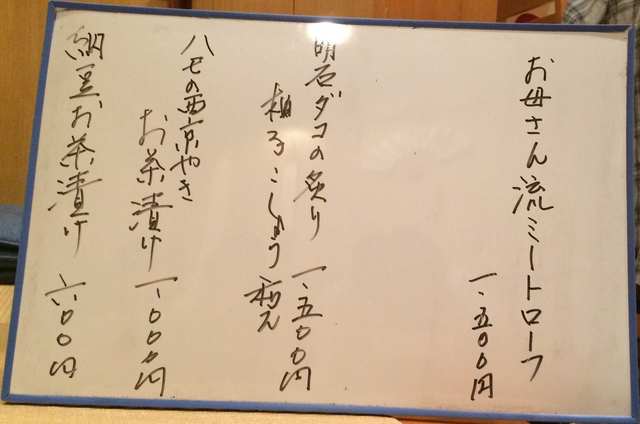 お母さん流ミートローフ
一、五〇〇円
明石ダコの炙り
柚子こしょう和え
一、五〇〇円
ハモの西京やき
お茶漬け
一、〇〇〇円
納豆お茶漬け
六〇〇円